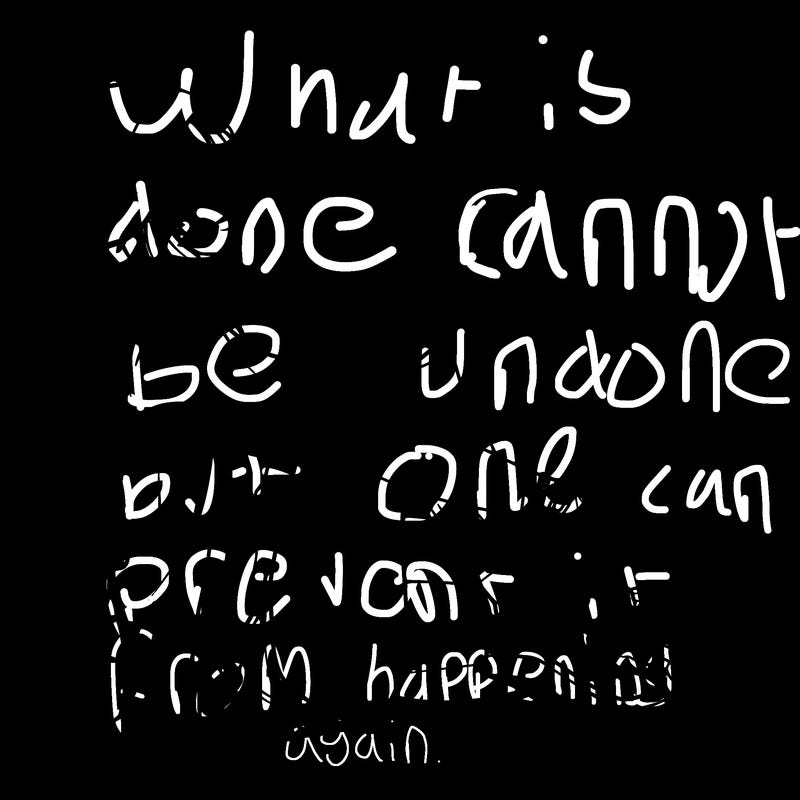 What is
done cannot
be undone
but one can
prevent it
from happening
again.